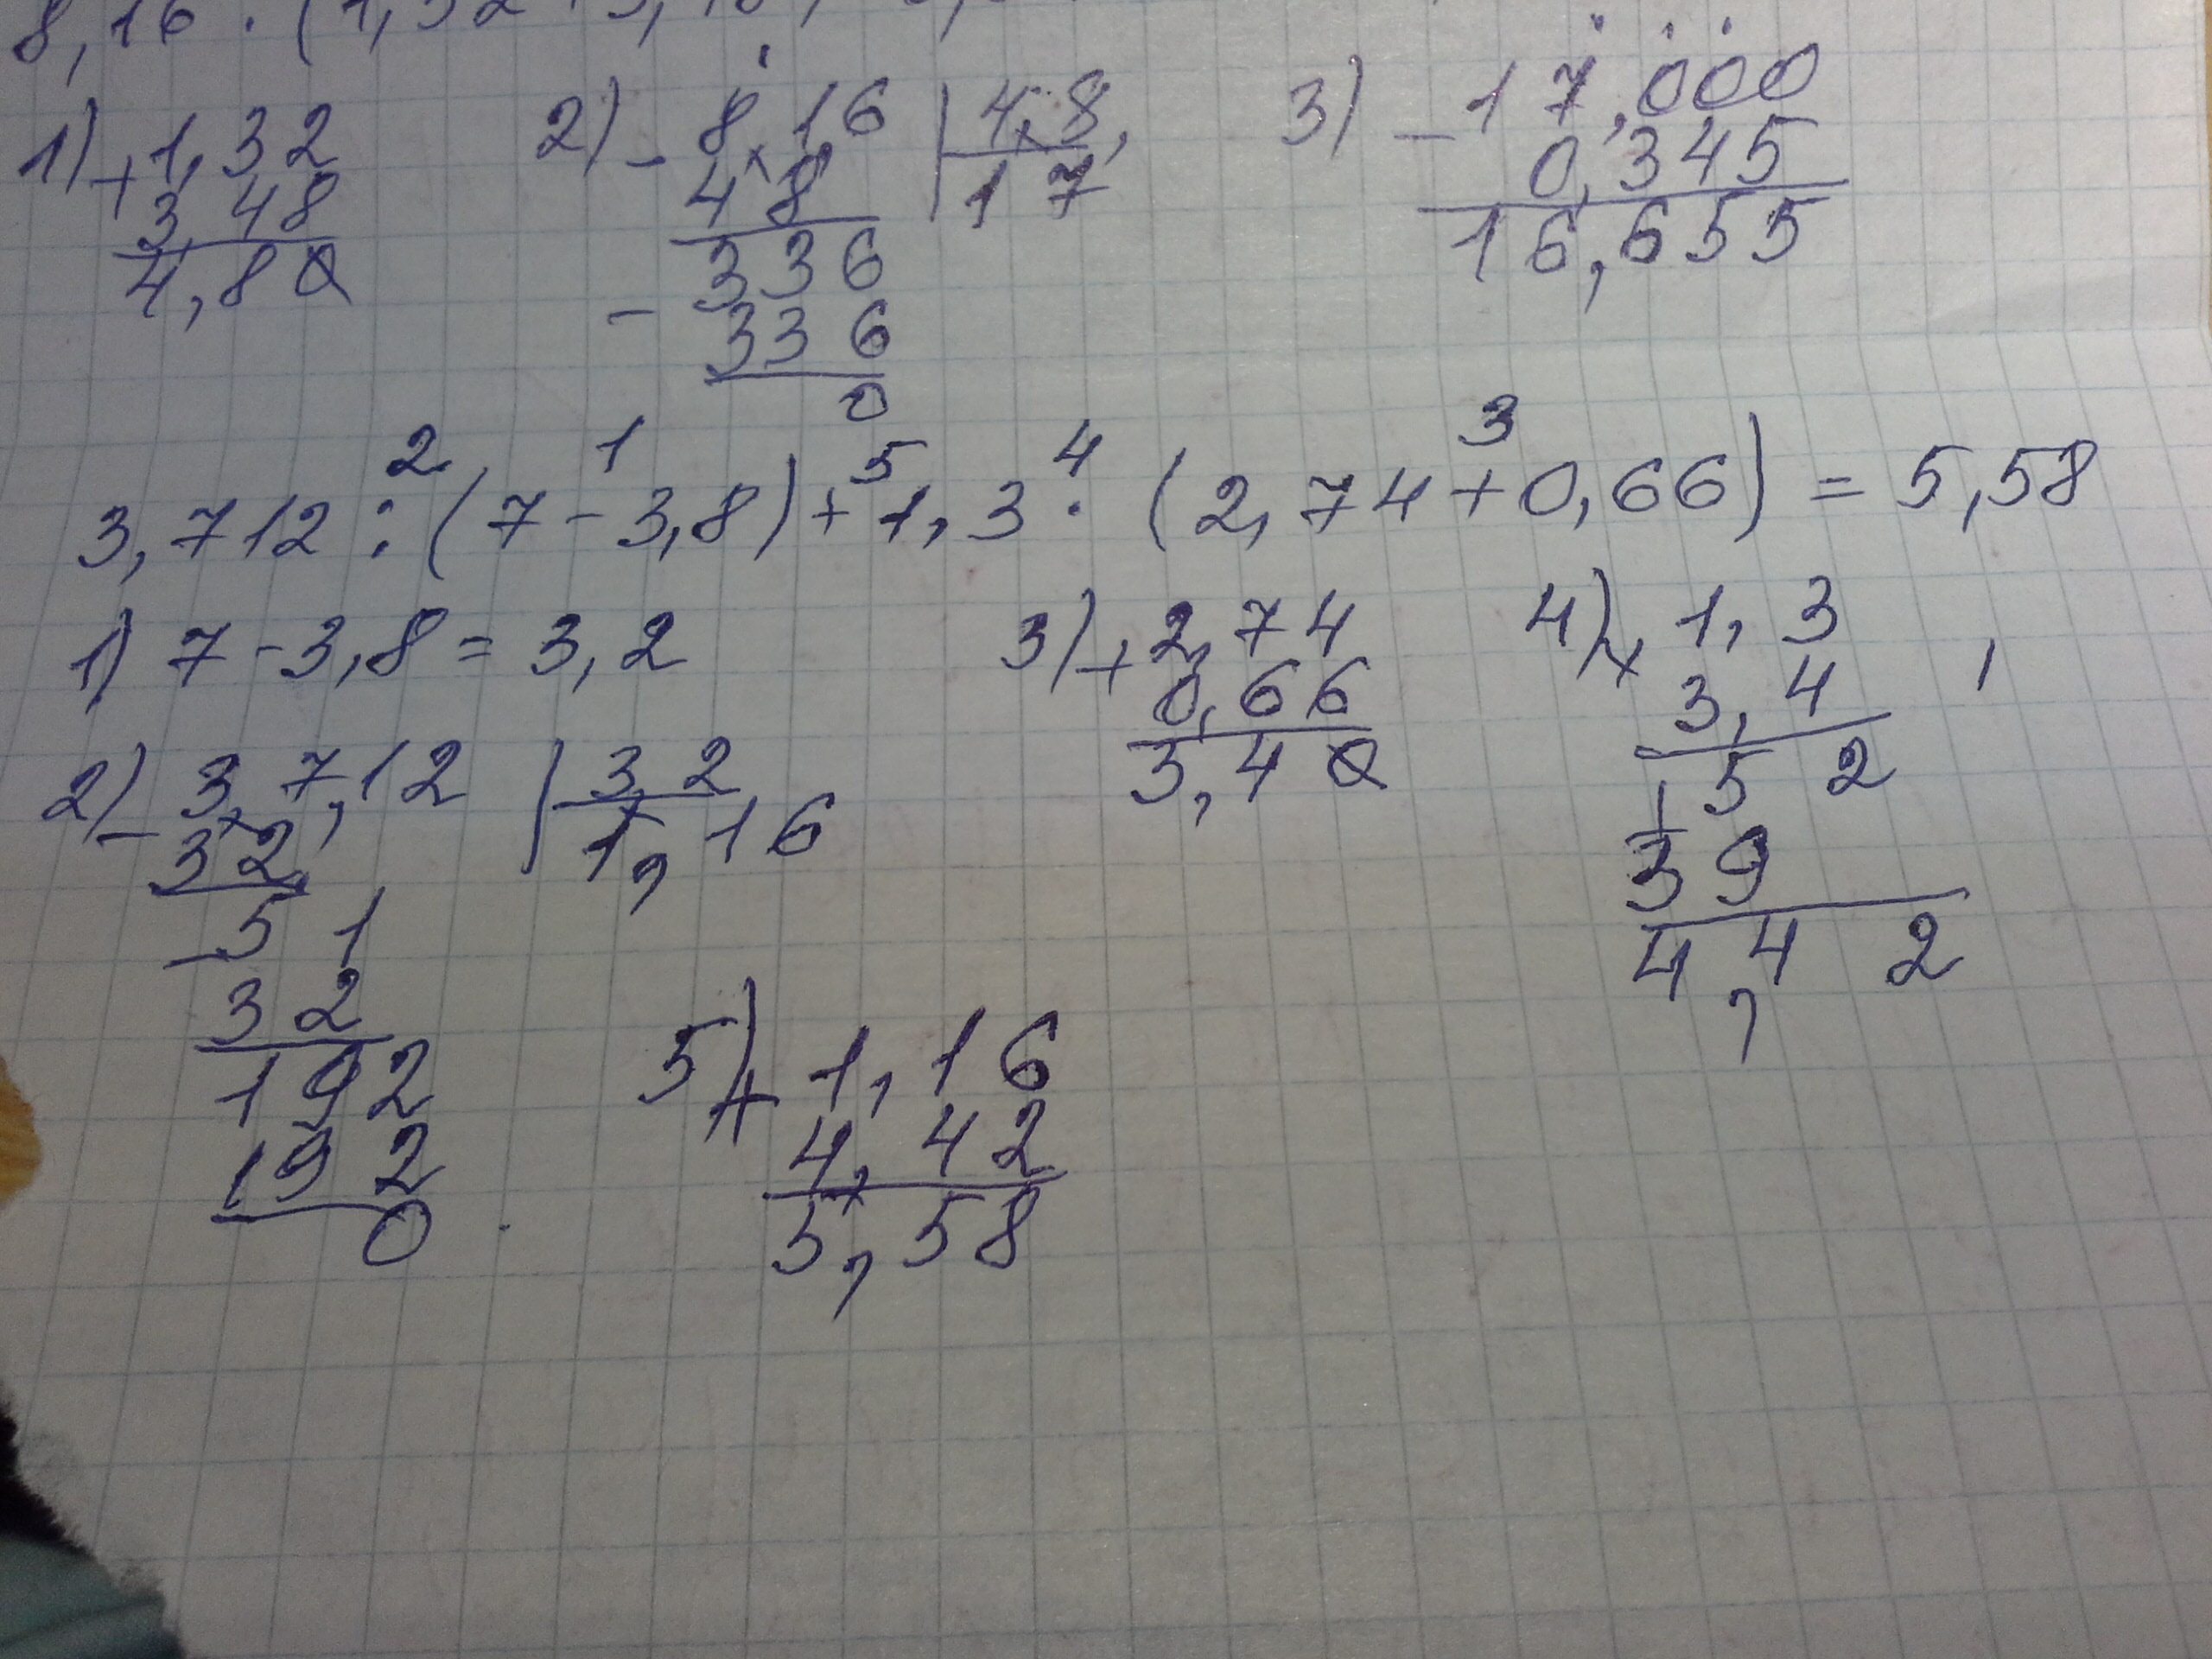 8,16 : (1,32
1) + 1,32
3,48
4,80
2) - 8,16 | 4,8
48 | 1,7
336
- 336
0
3) - 17,000
0,345
16,655
2 1 5 4 3
3,712 : (7 - 3,8) + 1,3 · (2,74 + 0,66) = 5,58
1) 7 - 3,8 = 3,2
2) - 3,7,12 | 3,2
32 | 1,16
- 51
32
192
192
0
3) + 2,74
0,66
3,40
4) × 1,3
3,4
152
39
4,42
5) + 1,16
4,42
5,58